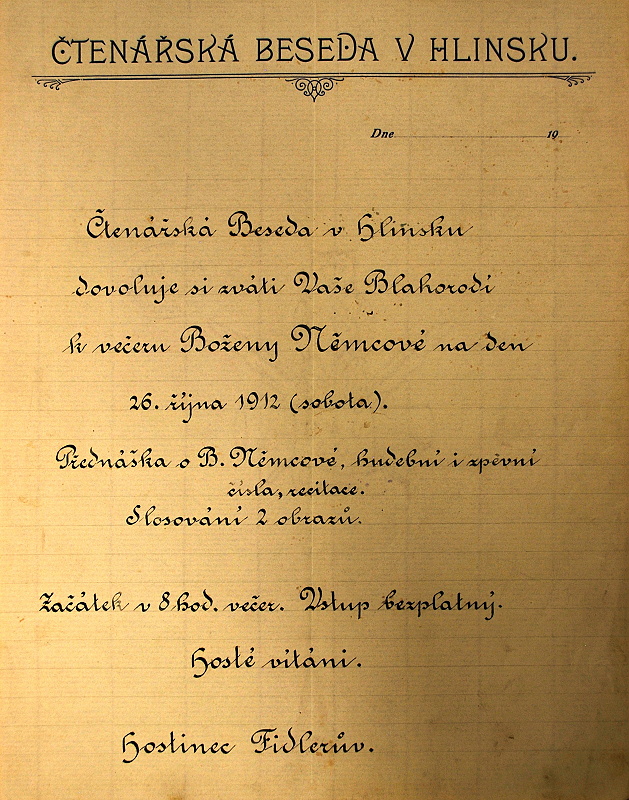 ČTENÁŘSKÁ BESEDA V HLINSKU.
Dne 19
Čtenářská Beseda v Hlinsku
dovoluje si zváti Vaše Blahorodí
k večeru Boženy Němcové na den
26. října 1912 (sobota).
Přednáška o B. Němcové, hudební i zpěvní
čísla, recitace.
Slosování 2 obrazů.
Začátek v 8 hod. večer. Vstup bezplatný.
Hosté vítáni.
Hostinec Fidlerův.